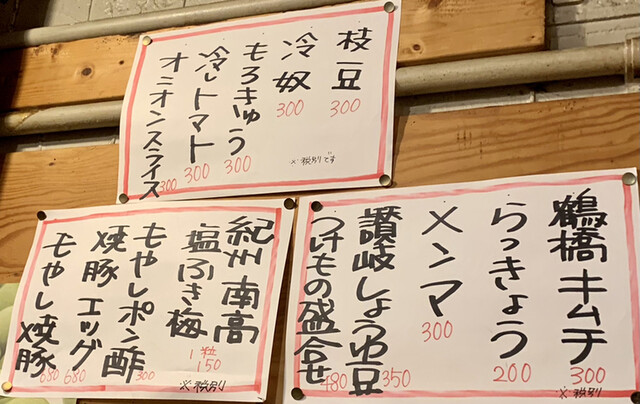 枝豆
300
冷奴
300
もろきゅう
300
冷しトマト
300
オニオンスライス
300
※税別です
鶴橋キムチ
300
らっきょう
200
メンマ
300
讃岐しょうゆ豆
350
つけもの盛合せ
480
※税別
紀州南高
塩ふき梅
1粒
150
もやしポン酢
300
焼豚エッグ
680
もやし焼豚
680
※税別